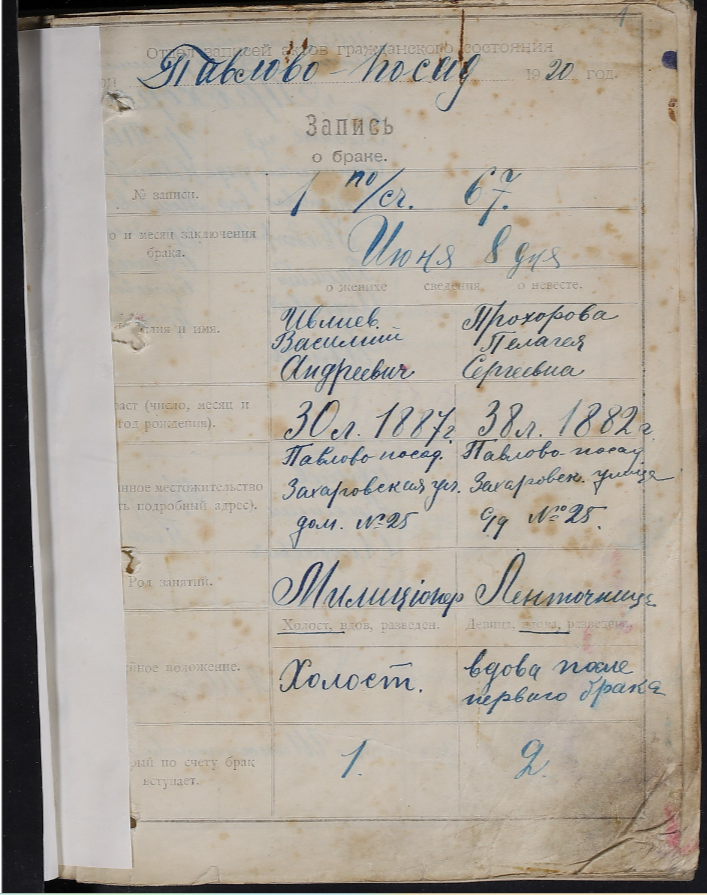 Отдел записей актов гражданского состояния
Павлово-посад 1920 год.
Запись
о браке.
№ записи. 1 по/сч. 67.
и месяц заключения
брака. Июня 8 дня
о женихе сведения о невесте.
Ивлиев Прохорова
и имя. Василий Пелагея
Андреевич Сергеевна
(число, месяц и
год рождения). 30 л. 1887 г. 38 л. 1882 г.
Павлово-посад. Павлово-посад
местожительство Захаровская ул. Захаровск. улица
подробный адрес). дом. № 25 № 25.
Род занятий. Милиціонер Ленточница
Холост, вдов, разведен. Девица, вдова, разведена.
положение. Холост. вдова после
первого брака
по счету брак
вступает. 1. 2.